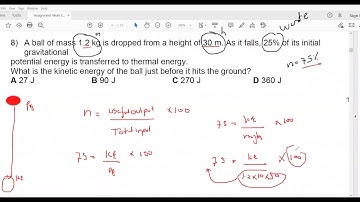 waste
m
h
8) A ball of mass 1.2 kg is dropped from a height of 30 m. As it falls, 25% of its initial
gravitational
potential energy is transferred to thermal energy.
n=75%
What is the kinetic energy of the ball just before it hits the ground?
A 27 J B 90 J C 270 J D 360 J
PE
n = useful output ×100
Total input
75 = ke ×100
mgh
75 = KE ×100
PE
75 = ke × 100
1.2×10×30
KE